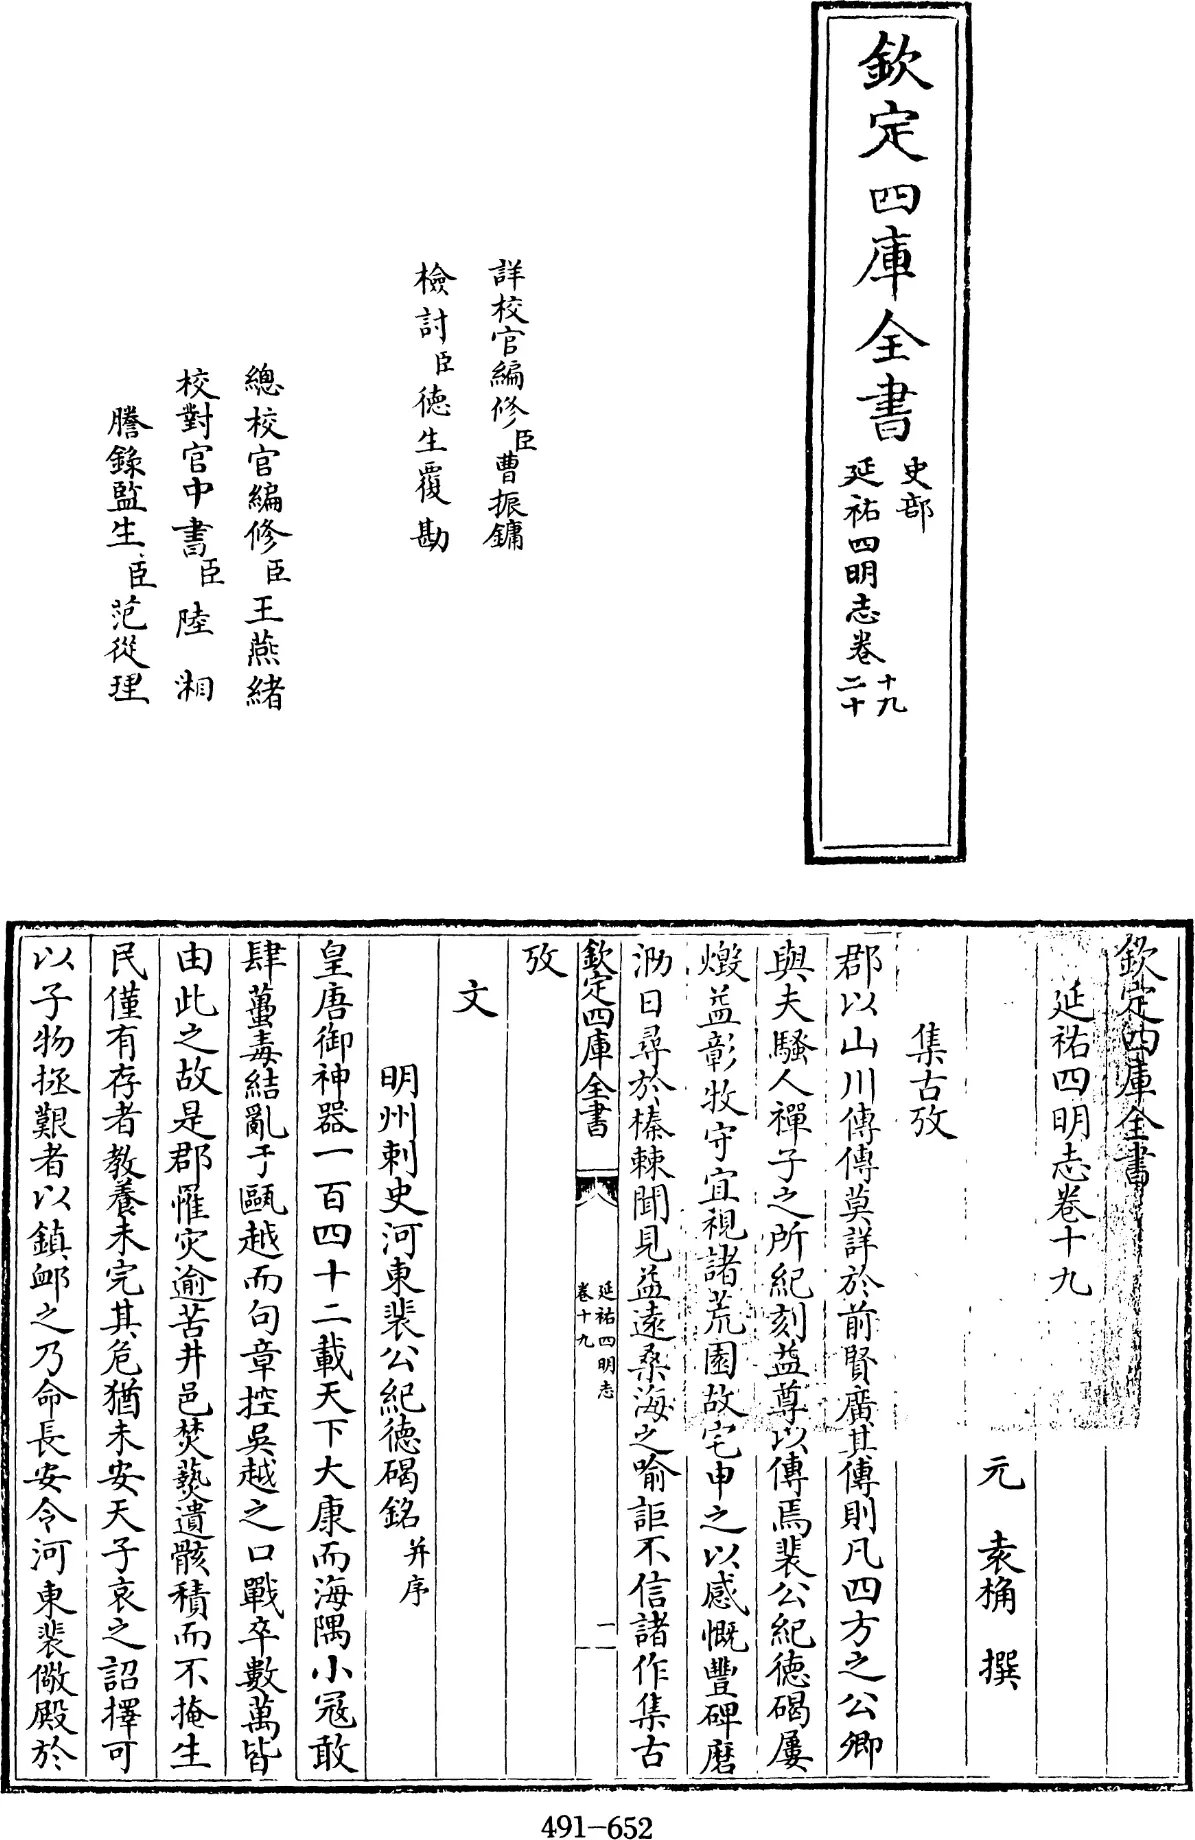 欽定四庫全書
史部
延祐四明志卷十九
二十
詳校官編修臣曹振鏞
檢討臣德生覆勘
總校官編修臣王燕緒
校對官中書臣陸湘
謄錄監生臣范從理
欽定四庫全書
延祐四明志卷十九
元 袁桷 撰
集古攷
郡以山川傳傳莫詳於前賢廣其傳則凡四方之公卿
與夫騷人禪子之所紀刻益尊以傳焉裴公紀德碣屢
燬益彰牧守宜視諸荒園故宅申之以感慨豐碑磨
泐日尋於榛棘聞見益遠桑海之喻詎不信諸作集古
欽定四庫全書
延祐四明志
卷十九
一
攷
文
明州刺史河東裴公紀德碣銘并序
皇唐御神器一百四十二載天下大康而海隅小冦敢
肆蠆毒結亂于甌越而句章控吳越之口戰卒數萬皆
由此之故是郡罹灾逾苦井邑焚爇遺骸積而不掩生
民僅有存者教養未完其危猶未安天子哀之詔擇可
以子物拯艱者以鎮䘏之乃命長安令河東裴儆殿於
491-652